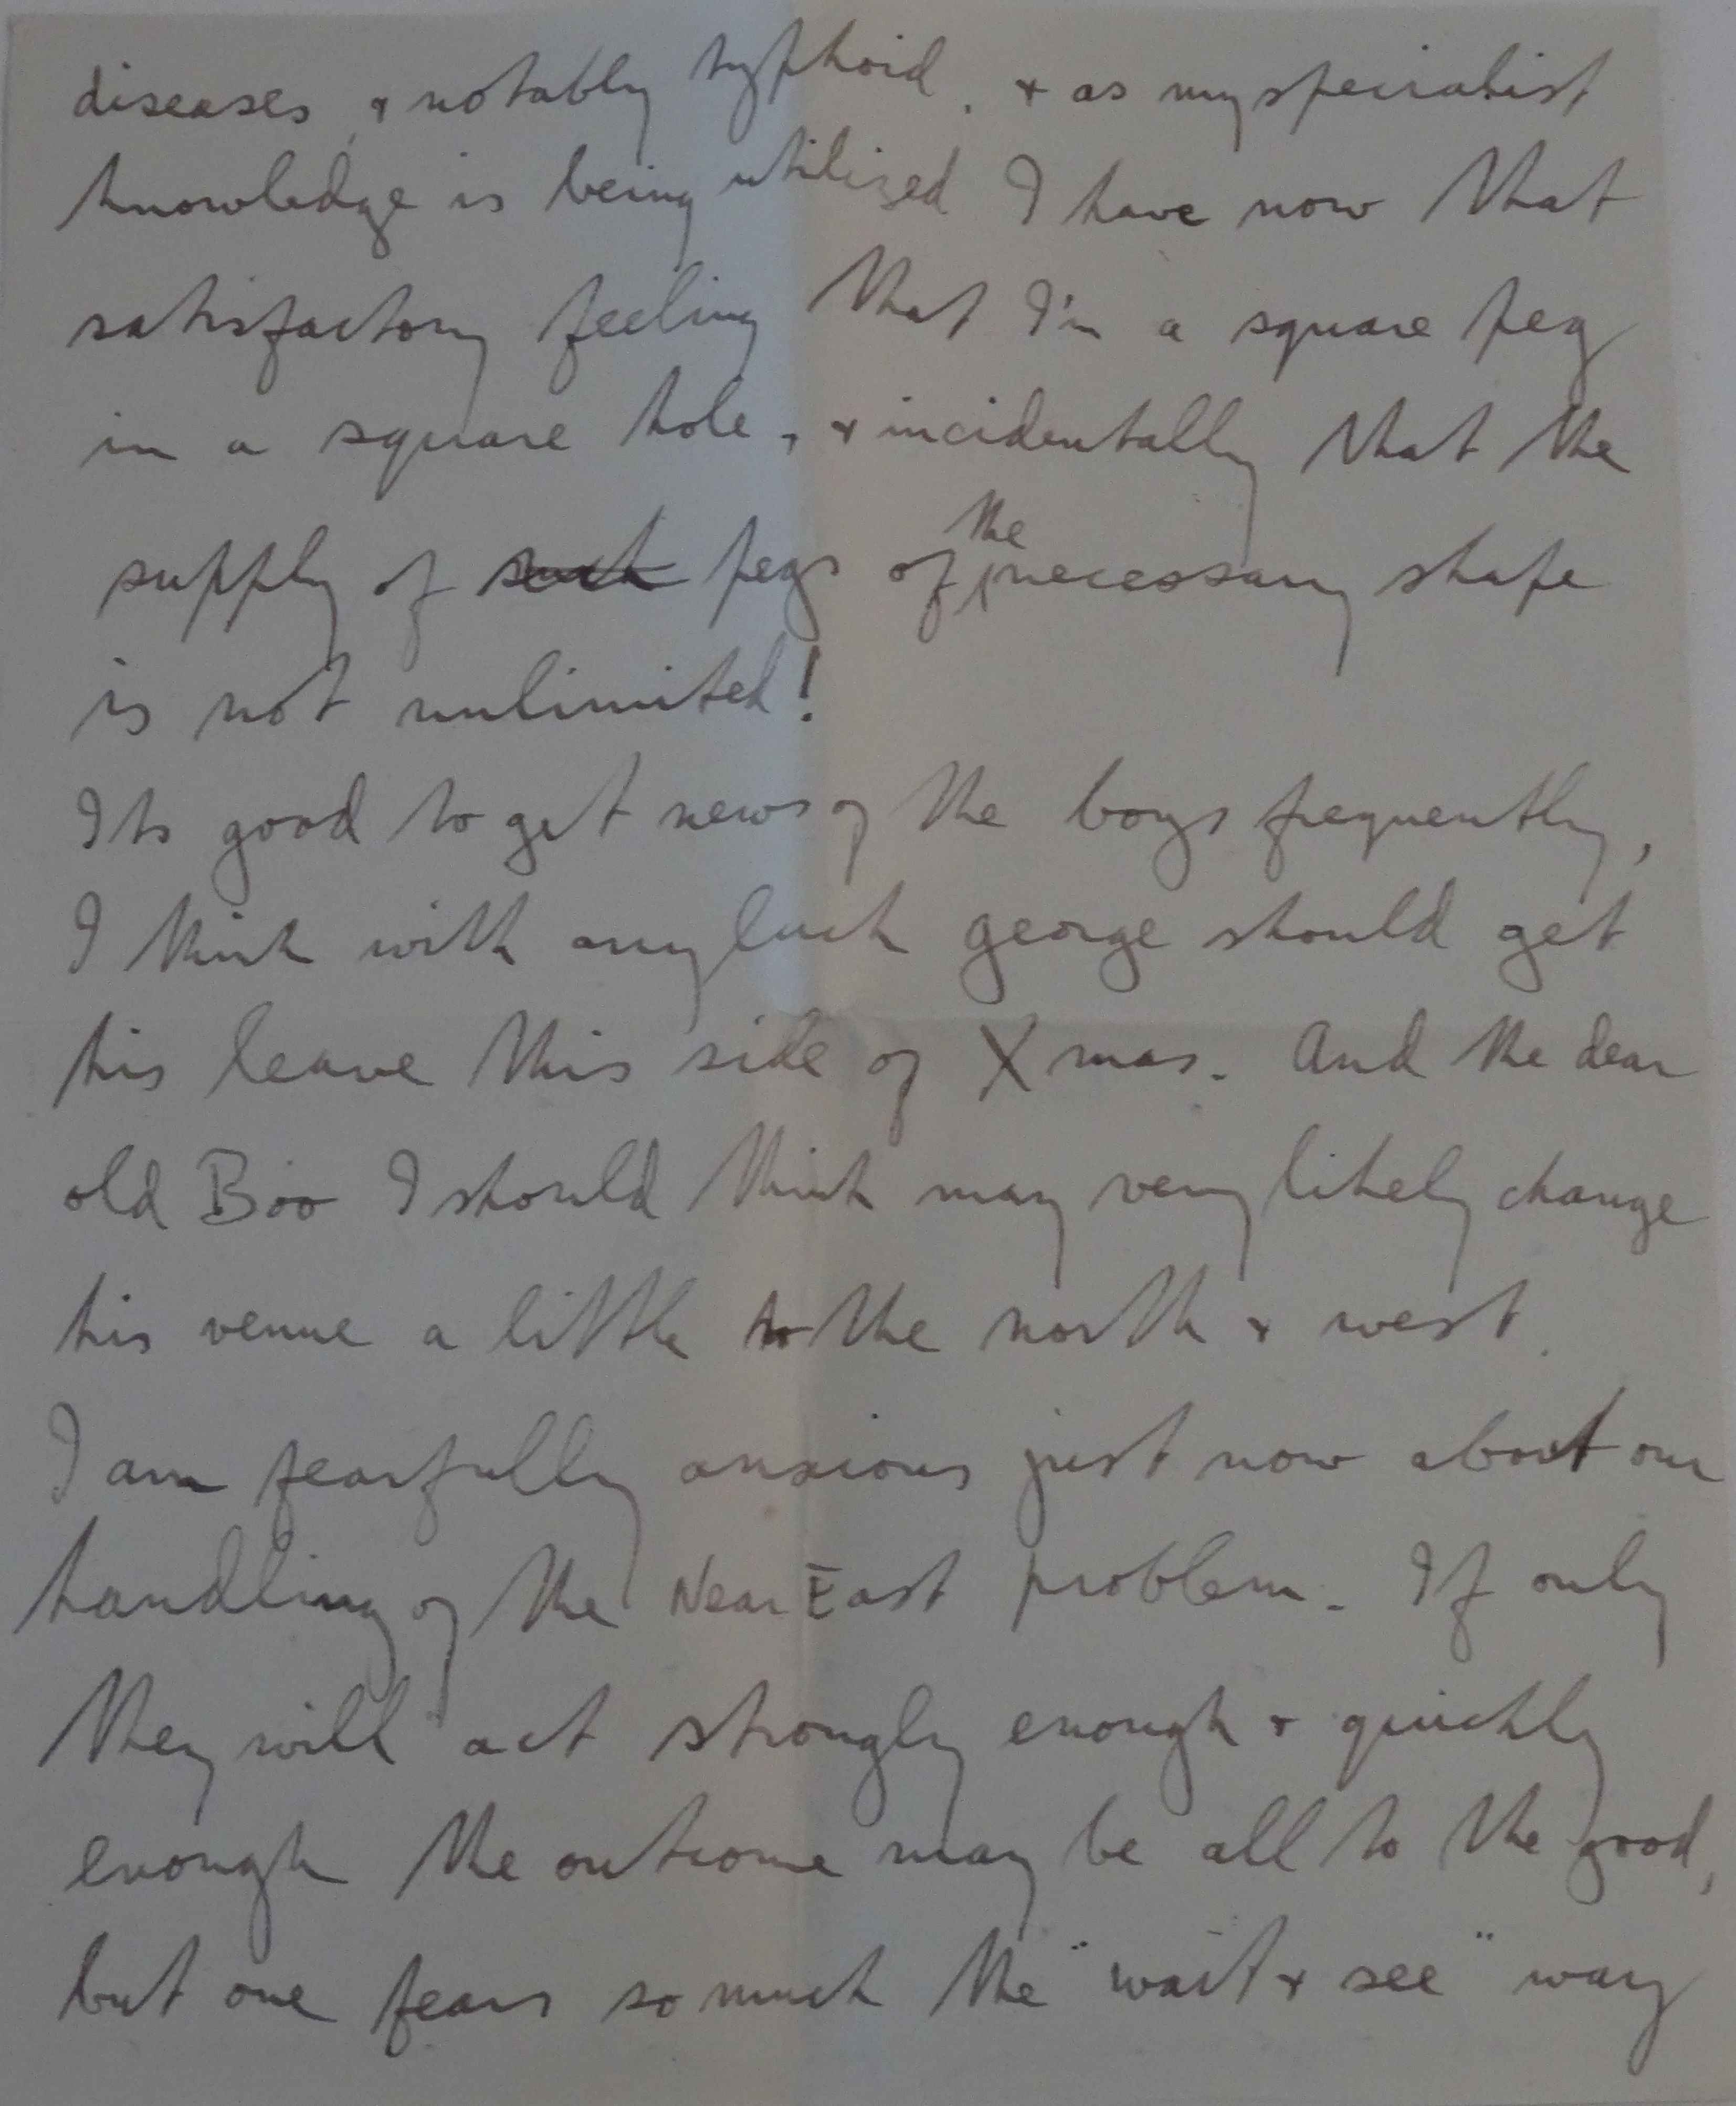 diseases, & notably typhoid, & as my specialist
knowledge is being utilized I have now that
satisfactory feeling that I'm a square peg
in a square hole, & incidentally that the
supply of such pegs of the necessary shape
is not unlimited!
Its good to get news of the boys frequently,
I think with any luck george should get
his leave this side of Xmas. And the dear
old Boo I should think may very likely change
his venue a little to the north & west.
I am fearfully anxious just now about our
handling of the Near East problem. If only
they will act strongly enough & quickly
enough the outcome may be all to the good,
but one fears so much the "wait & see" way